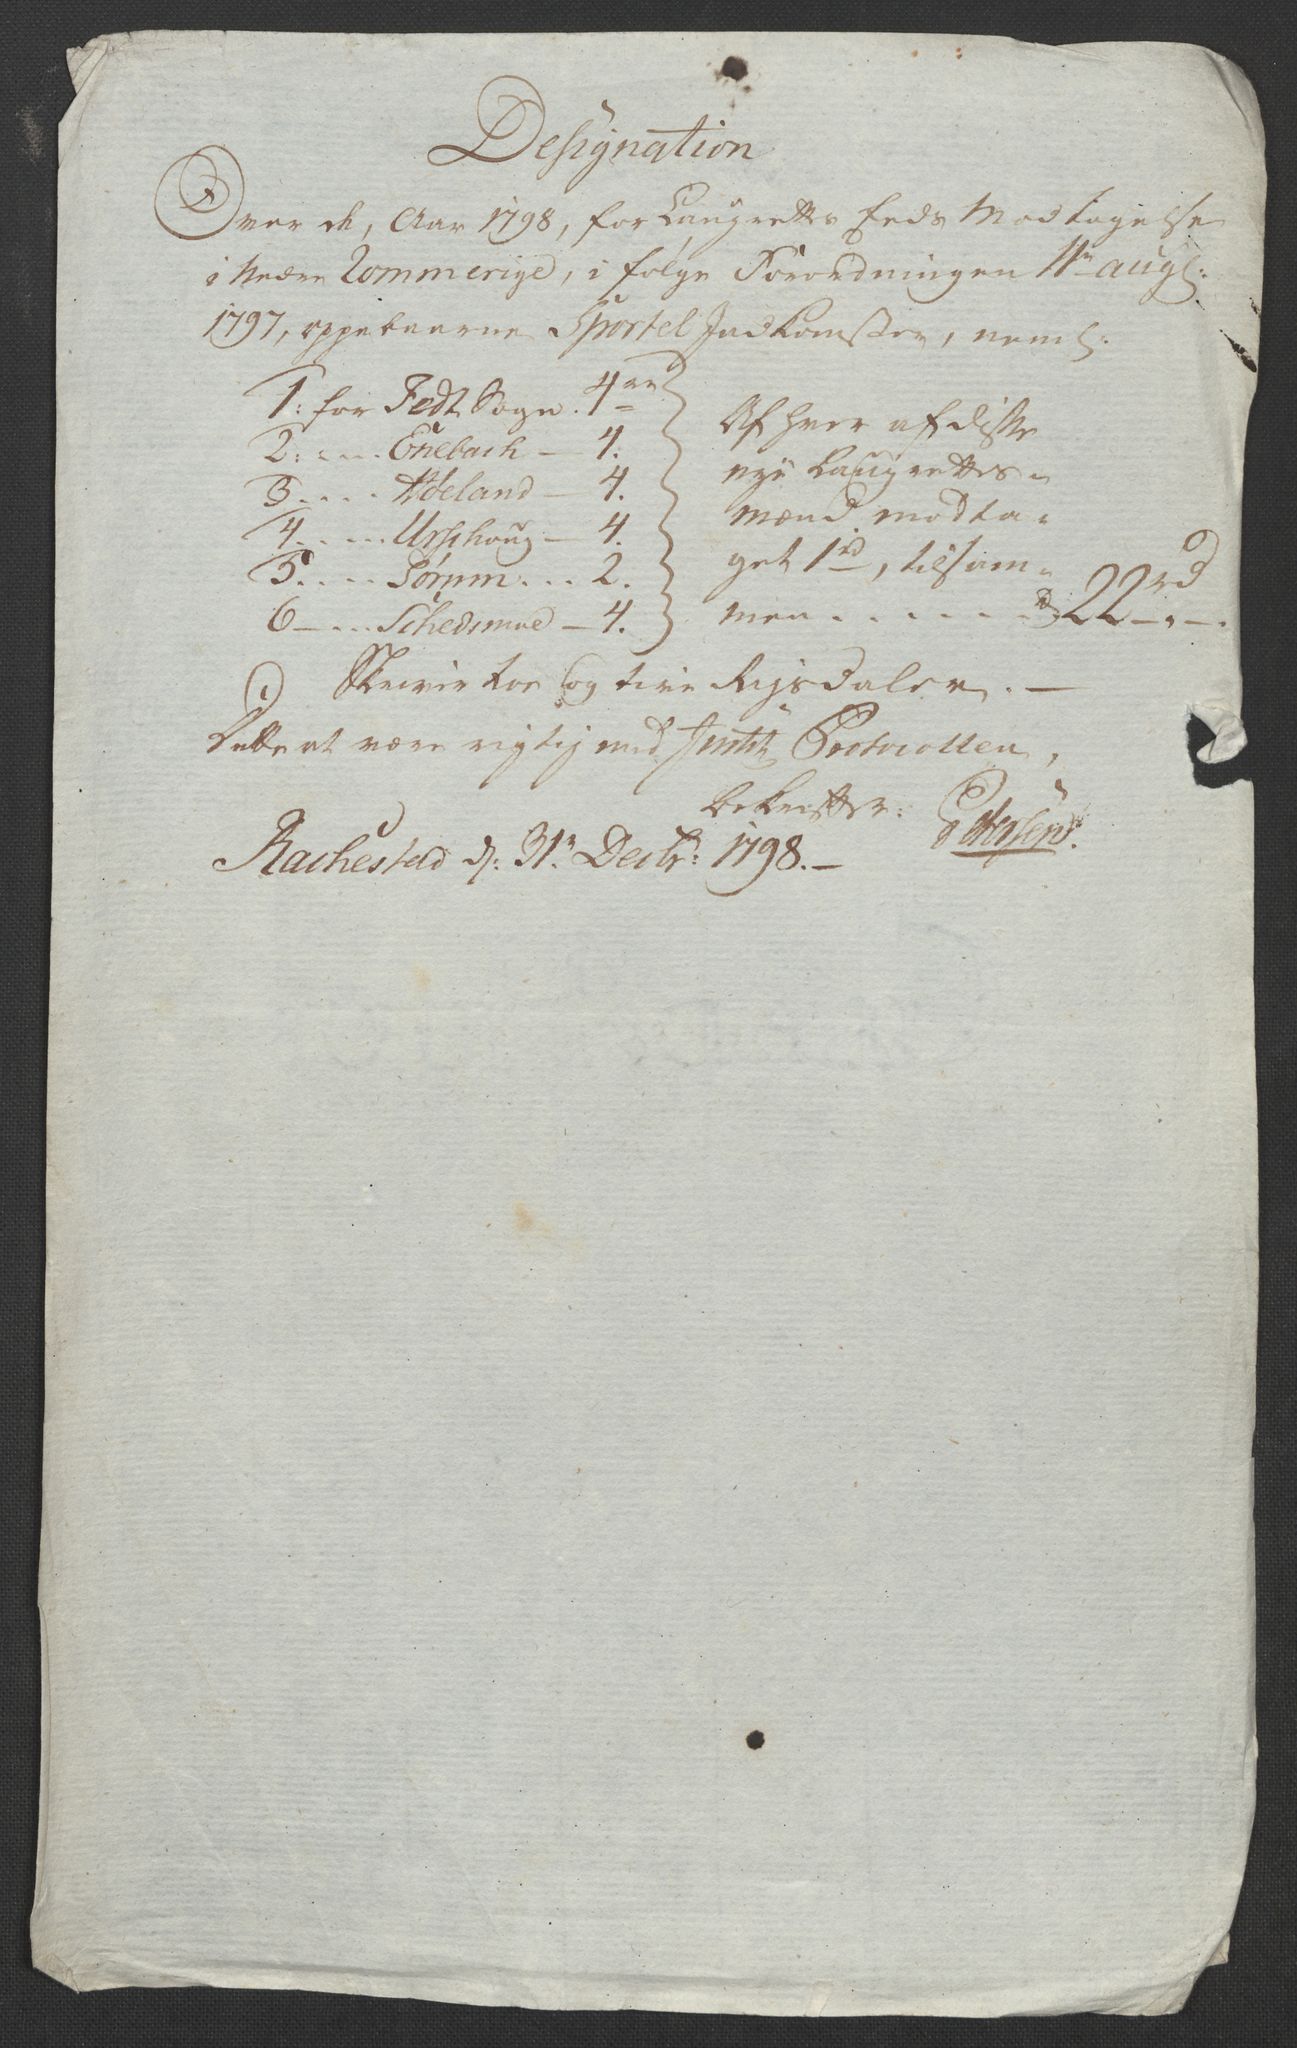 Designation
Over de, Aar 1798, for Laugretts Eeds Modtagelse
i Nedre Rommerige, i følge Forordningen 11te augs:
1797, oppebaarne Sportel Indkomster, neml:
1: for Fedt Sogn. 4re
2: .... Enebach — 4.
3 .... Høeland — 4.
4 .... Urschoug — 4.
5 .... Sørum ... 2.
6 — ... Schedsmoe — 4.
Af hver af disse
nye Laugrettes-
mænd modta-
get 1rd, tilsam-
men . . . . . 22rd — „ —.
Skriver toe og tive Rigsdaler. —
Dette at være rigtig med Justits Protocollen,
bekræfter:
Rachestad d: 31te Decbr: 1798. —